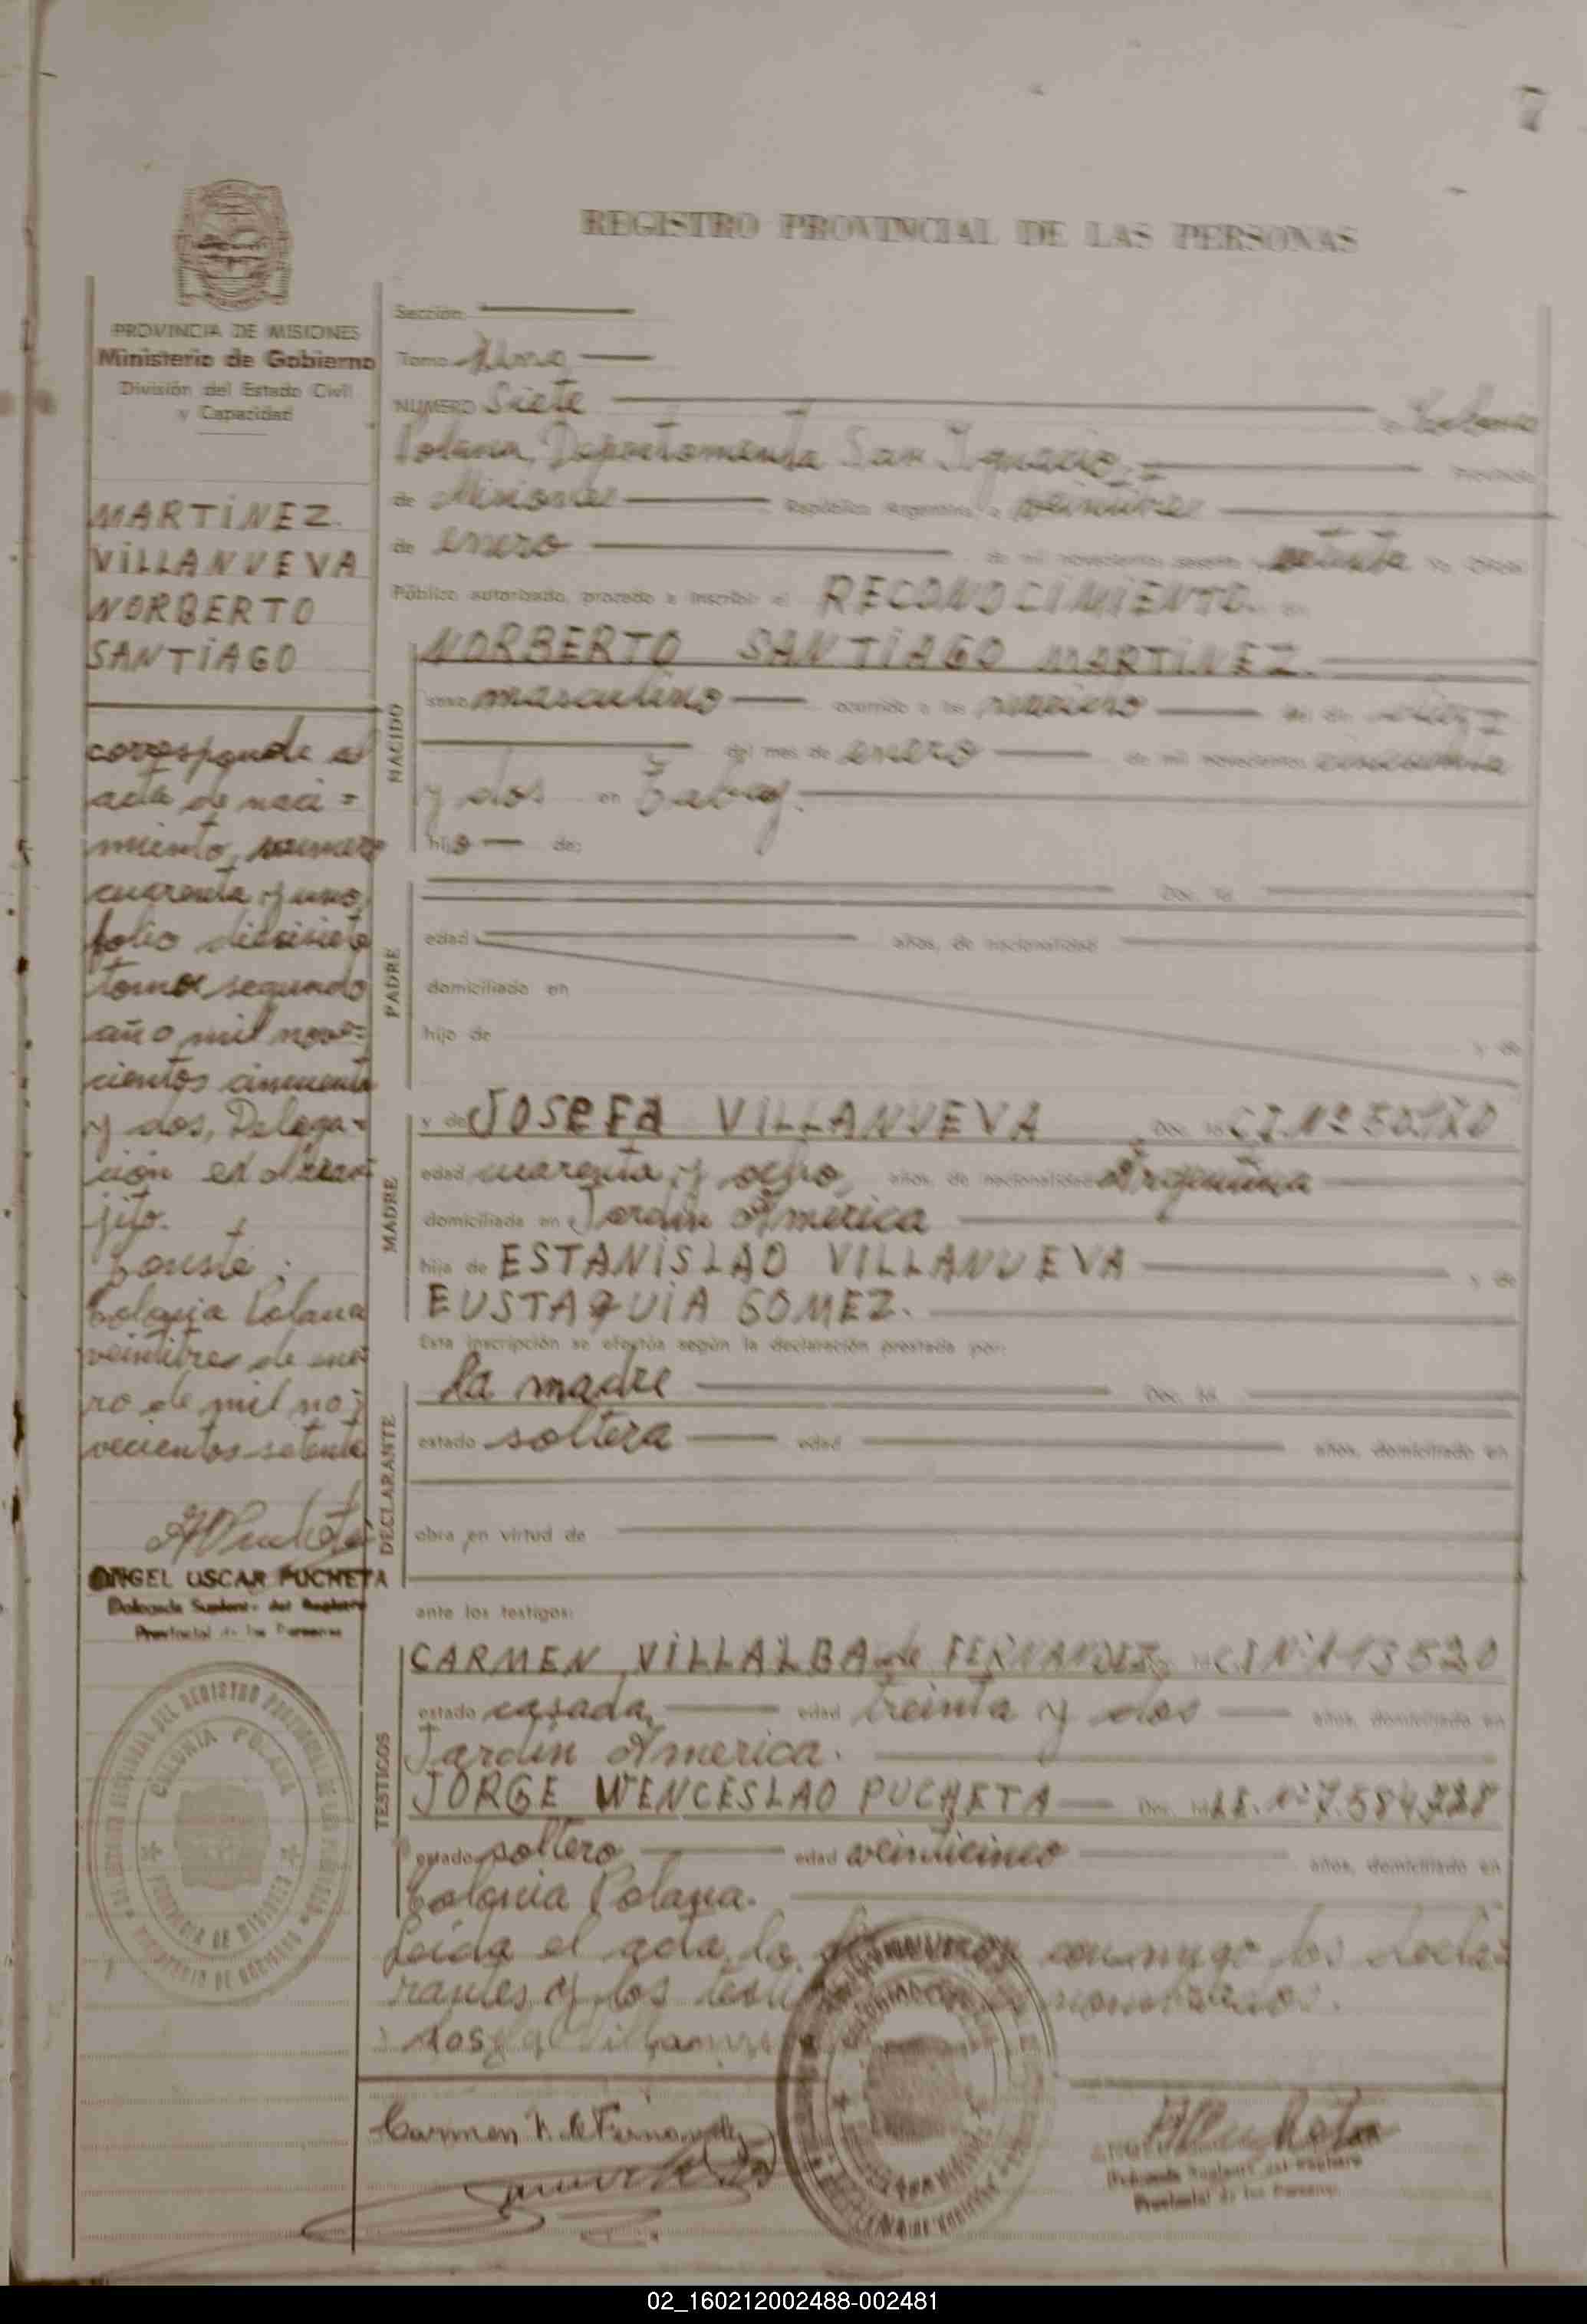 7
REGISTRO PROVINCIAL DE LAS PERSONAS
PROVINCIA DE MISIONES
Ministerio de Gobierno
División del Estado Civil
y Capacidad
MARTINEZ
VILLANUEVA
NORBERTO
SANTIAGO
corresponde al
acta de naci=
miento, número
cuarenta y uno,
folio diecisiete
tomo segundo
año mil nove=
cientos cincuenta
y dos, Delega-
ción el
jito.
Conste:
Colonia Polana
veintitres de ene
ro de mil no
vecientos setenta
ANGEL OSCAR PUCHETA
Delegado Suplente del Registro
Provincial de las Personas
Sección
Tomo Uno
NUMERO Siete en Colonia
Polana, Departamento San Ignacio, Provincia
de Misiones República Argentina, a veintitres
de enero de mil novecientos setenta Yo Oficial
Público autorizado, procedo a inscribir el RECONOCIMIENTO. de
NACIDO
NORBERTO SANTIAGO MARTINEZ.
sexo masculino ocurrido a las del día diez
del mes de enero de mil novecientos cincuenta
y dos en
hijo de:
PADRE
Doc. Id.
edad años, de nacionalidad
domiciliado en
hijo de
y de
MADRE
y de JOSEFA VILLANUEVA Doc. Id. C.I. Nº 50.120
edad cuarenta y ocho, años, de nacionalidad Argentina
domiciliada en Jardín América
hija de ESTANISLAO VILLANUEVA y de
EUSTAQUIA GOMEZ.
Esta inscripción se efectúa según la declaración prestada por:
DECLARANTE
la madre Doc. Id.
estado soltera edad años, domiciliado en
obra en virtud de
ante los testigos:
TESTIGOS
CARMEN VILLALBA de FERNANDEZ C.I Nº 113520
estado casada, edad treinta y dos años, domiciliado en
Jardín América.
JORGE WENCESLAO PUCHETA Doc. Id. L.E. Nº 7.584.728
estado soltero edad veinticinco años, domiciliado en
Colonia Polana.
Leida el acta, la conmigo los decla=
rantes y los nombrados.
Josefa Villanueva
Carmen V. de Fernandez
COLONIA POLANA
PROVINCIA DE MISIONES
Delegado Suplente del Registro
Provincial de las Personas
02_160212002488-002481